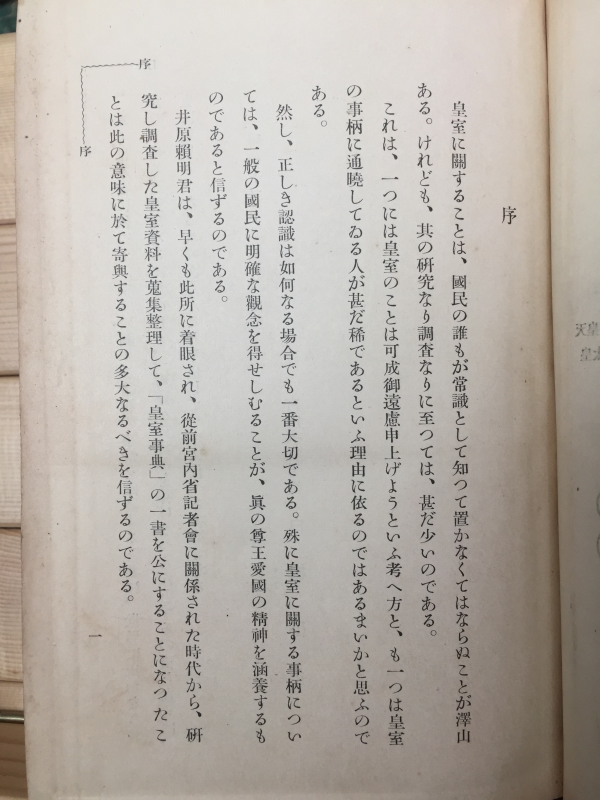 序
皇室に關することは、國民の誰もが常識として知つて置かなくてはならぬことが澤山
ある。けれども、其の硏究なり調査なりに至つては、甚だ少いのである。
これは、一つには皇室のことは可成御遠慮申上げようといふ考へ方と、も一つは皇室
の事柄に通曉してゐる人が甚だ稀であるといふ理由に依るのではあるまいかと思ふので
ある。
然し、正しき認識は如何なる場合でも一番大切である。殊に皇室に關する事柄につい
ては、一般の國民に明確な觀念を得せしむることが、眞の尊王愛國の精神を涵養するも
のであると信ずるのである。
井原賴明君は、早くも此所に着眼され、從前宮内省記者會に關係された時代から、硏
究し調査した皇室資料を蒐集整理して、「皇室事典」の一書を公にすることになつたこ
とは此の意味に於て寄與することの多大なるべきを信ずるのである。
序
序
一